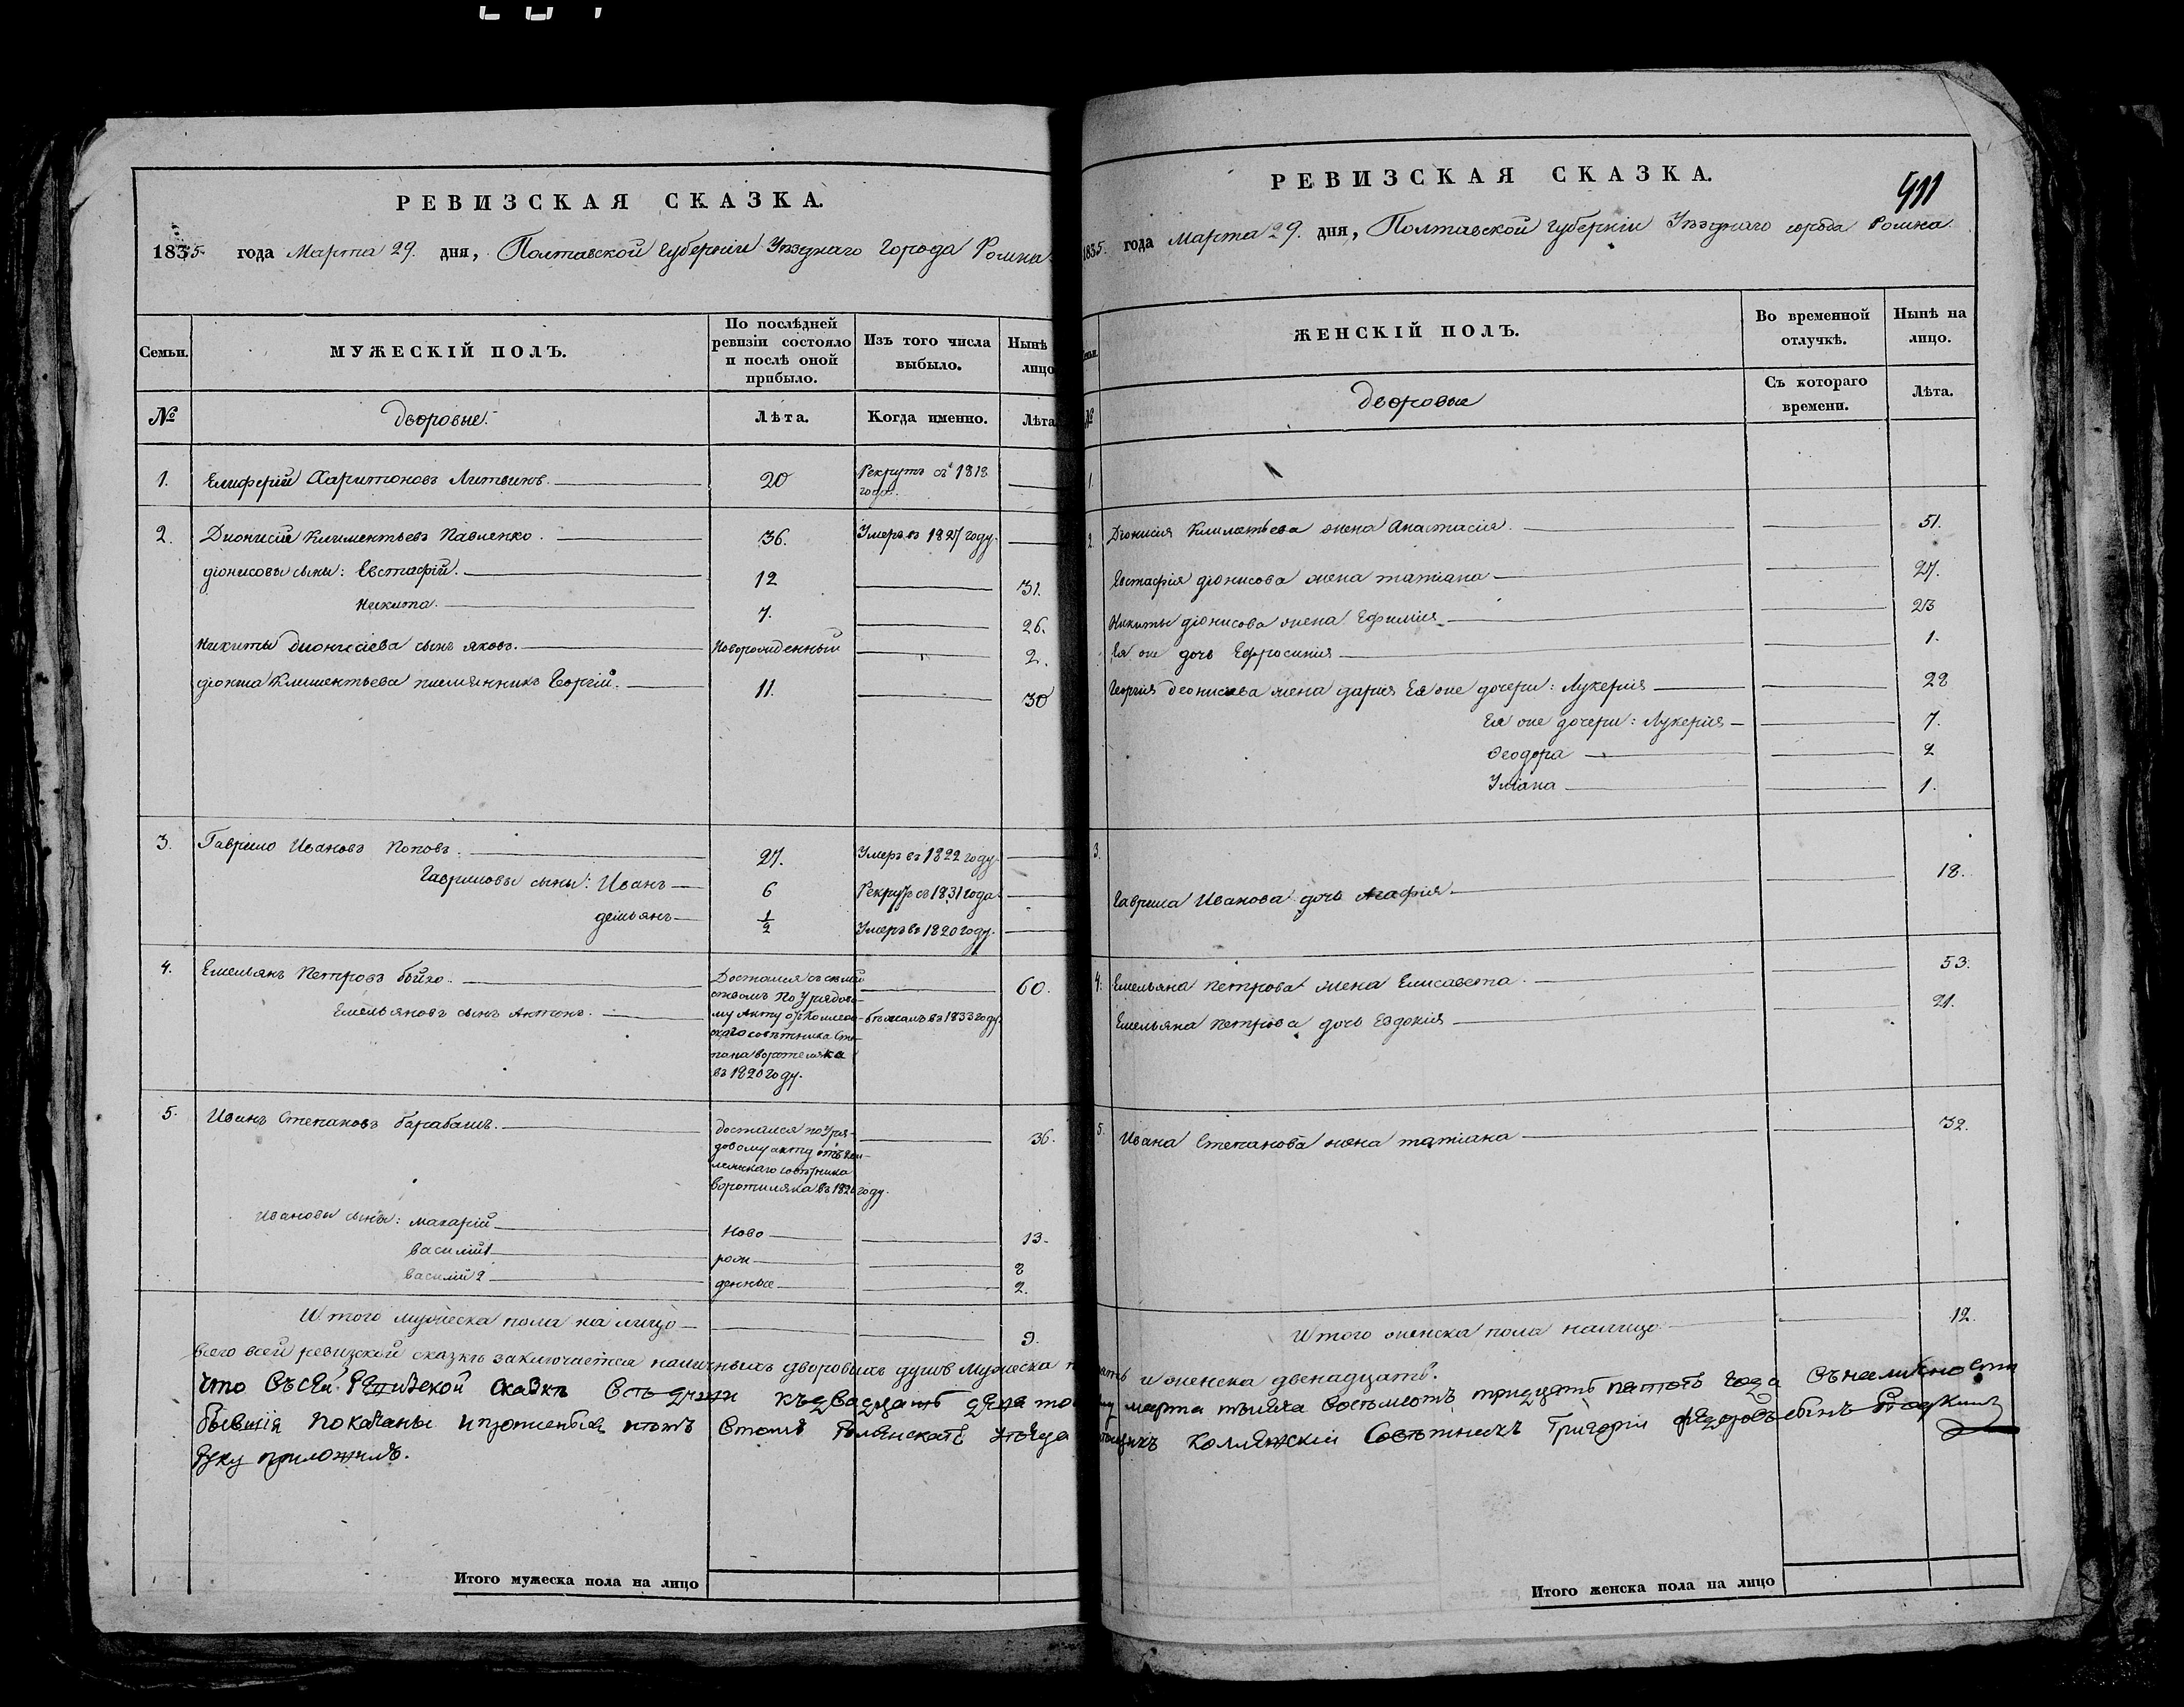 РЕВИЗСКАЯ СКАЗКА.
1835 года Марта 29. дня, Полтавской Губерніи Уѣзднаго Города Ромна
Семьи.
МУЖЕСКІЙ ПОЛЪ.
По послѣдней ревизіи состояло и послѣ оной прибыло.
Изъ того числа выбыло.
Нынѣ
лицо
№
Дворовые.
Лѣта.
Когда именно.
Лѣта
1. Елиферій Харитоновъ Литвинъ. 20 Рекрутъ съ 1818 года.
2. Дионисій Климентьевъ Павленко. 36. Умеръ въ 1827 году.
діонисовы сыны: Евстафій. 12 31.
Никита. 7. 26.
Никиты Дионисіева сынъ яковъ. Новорожденный 2.
Климентьева племянникъ Георгій. 11. 30
3. Гаврило Ивановъ Поповъ. 27. Умеръ въ 1822 году.
Гавриловы сыны: Иванъ 6 Рекрутъ съ 1831 года.
демьянъ 1/2 Умеръ въ 1820 году.
4. Емельянъ Петровъ 60.
Достался съ
ствомъ по Урядово-
му Акту от Коллеж-
скаго совѣтника Сте-
пана воротеляка
въ 1820 году.
Емельяновъ сынъ Антонъ. бѣжалъ въ 1833 году.
5. Иванъ Степановъ барабашъ. 36.
достался по Уря-
довому акту отъ Кол-
лежскаго совѣтника
воротиляка въ году.
Ивановы сыны: макарій Ново 13.
василій 1 рож 8
василій 2 денные 2.
Итого мужеска пола на лицо 9.
всего всей ревизской сказкѣ заключается наличныхъ дворовыхъ душъ Мужеска
что въ сей Ревизской сказкѣ
бывшія показаны
руку приложилъ.
Итого мужеска пола на лицо
РЕВИЗСКАЯ СКАЗКА.
911
1835. года Марта 29. дня, Полтавской Губерніи Уѣзднаго города Ромна.
ЖЕНСКІЙ ПОЛЪ.
Во временной отлучкѣ.
Нынѣ на лицо.
№
Дворовые
Съ котораго времени.
Лѣта.
1.
2. Діонисія Климентьева жена Анастасія. 51.
Евстафія діонисова жена татіана 27.
Никиты діонисова жена Ефимія 23
Ея же дочь Ефросинія 1.
Георгія деонисева жена дарія Ея же дочери: Лукерія 28
Ея же дочери: Лукерія 7.
Феодора 2
Уліана 1.
3.
Гаврила Иванова дочь Агафія 18.
4. Емельяна петрова жена Елисавета. 53.
Емельяна петрова дочь Евдокія 21.
5. Ивана Степанова жена татіана 32.
Итого женска пола налицо 12.
и женска двенадцать.
марта тысяча восемьсотъ тридцать пятого года
Колежскій Совѣтникъ Григорій
Итого женска пола на лицо